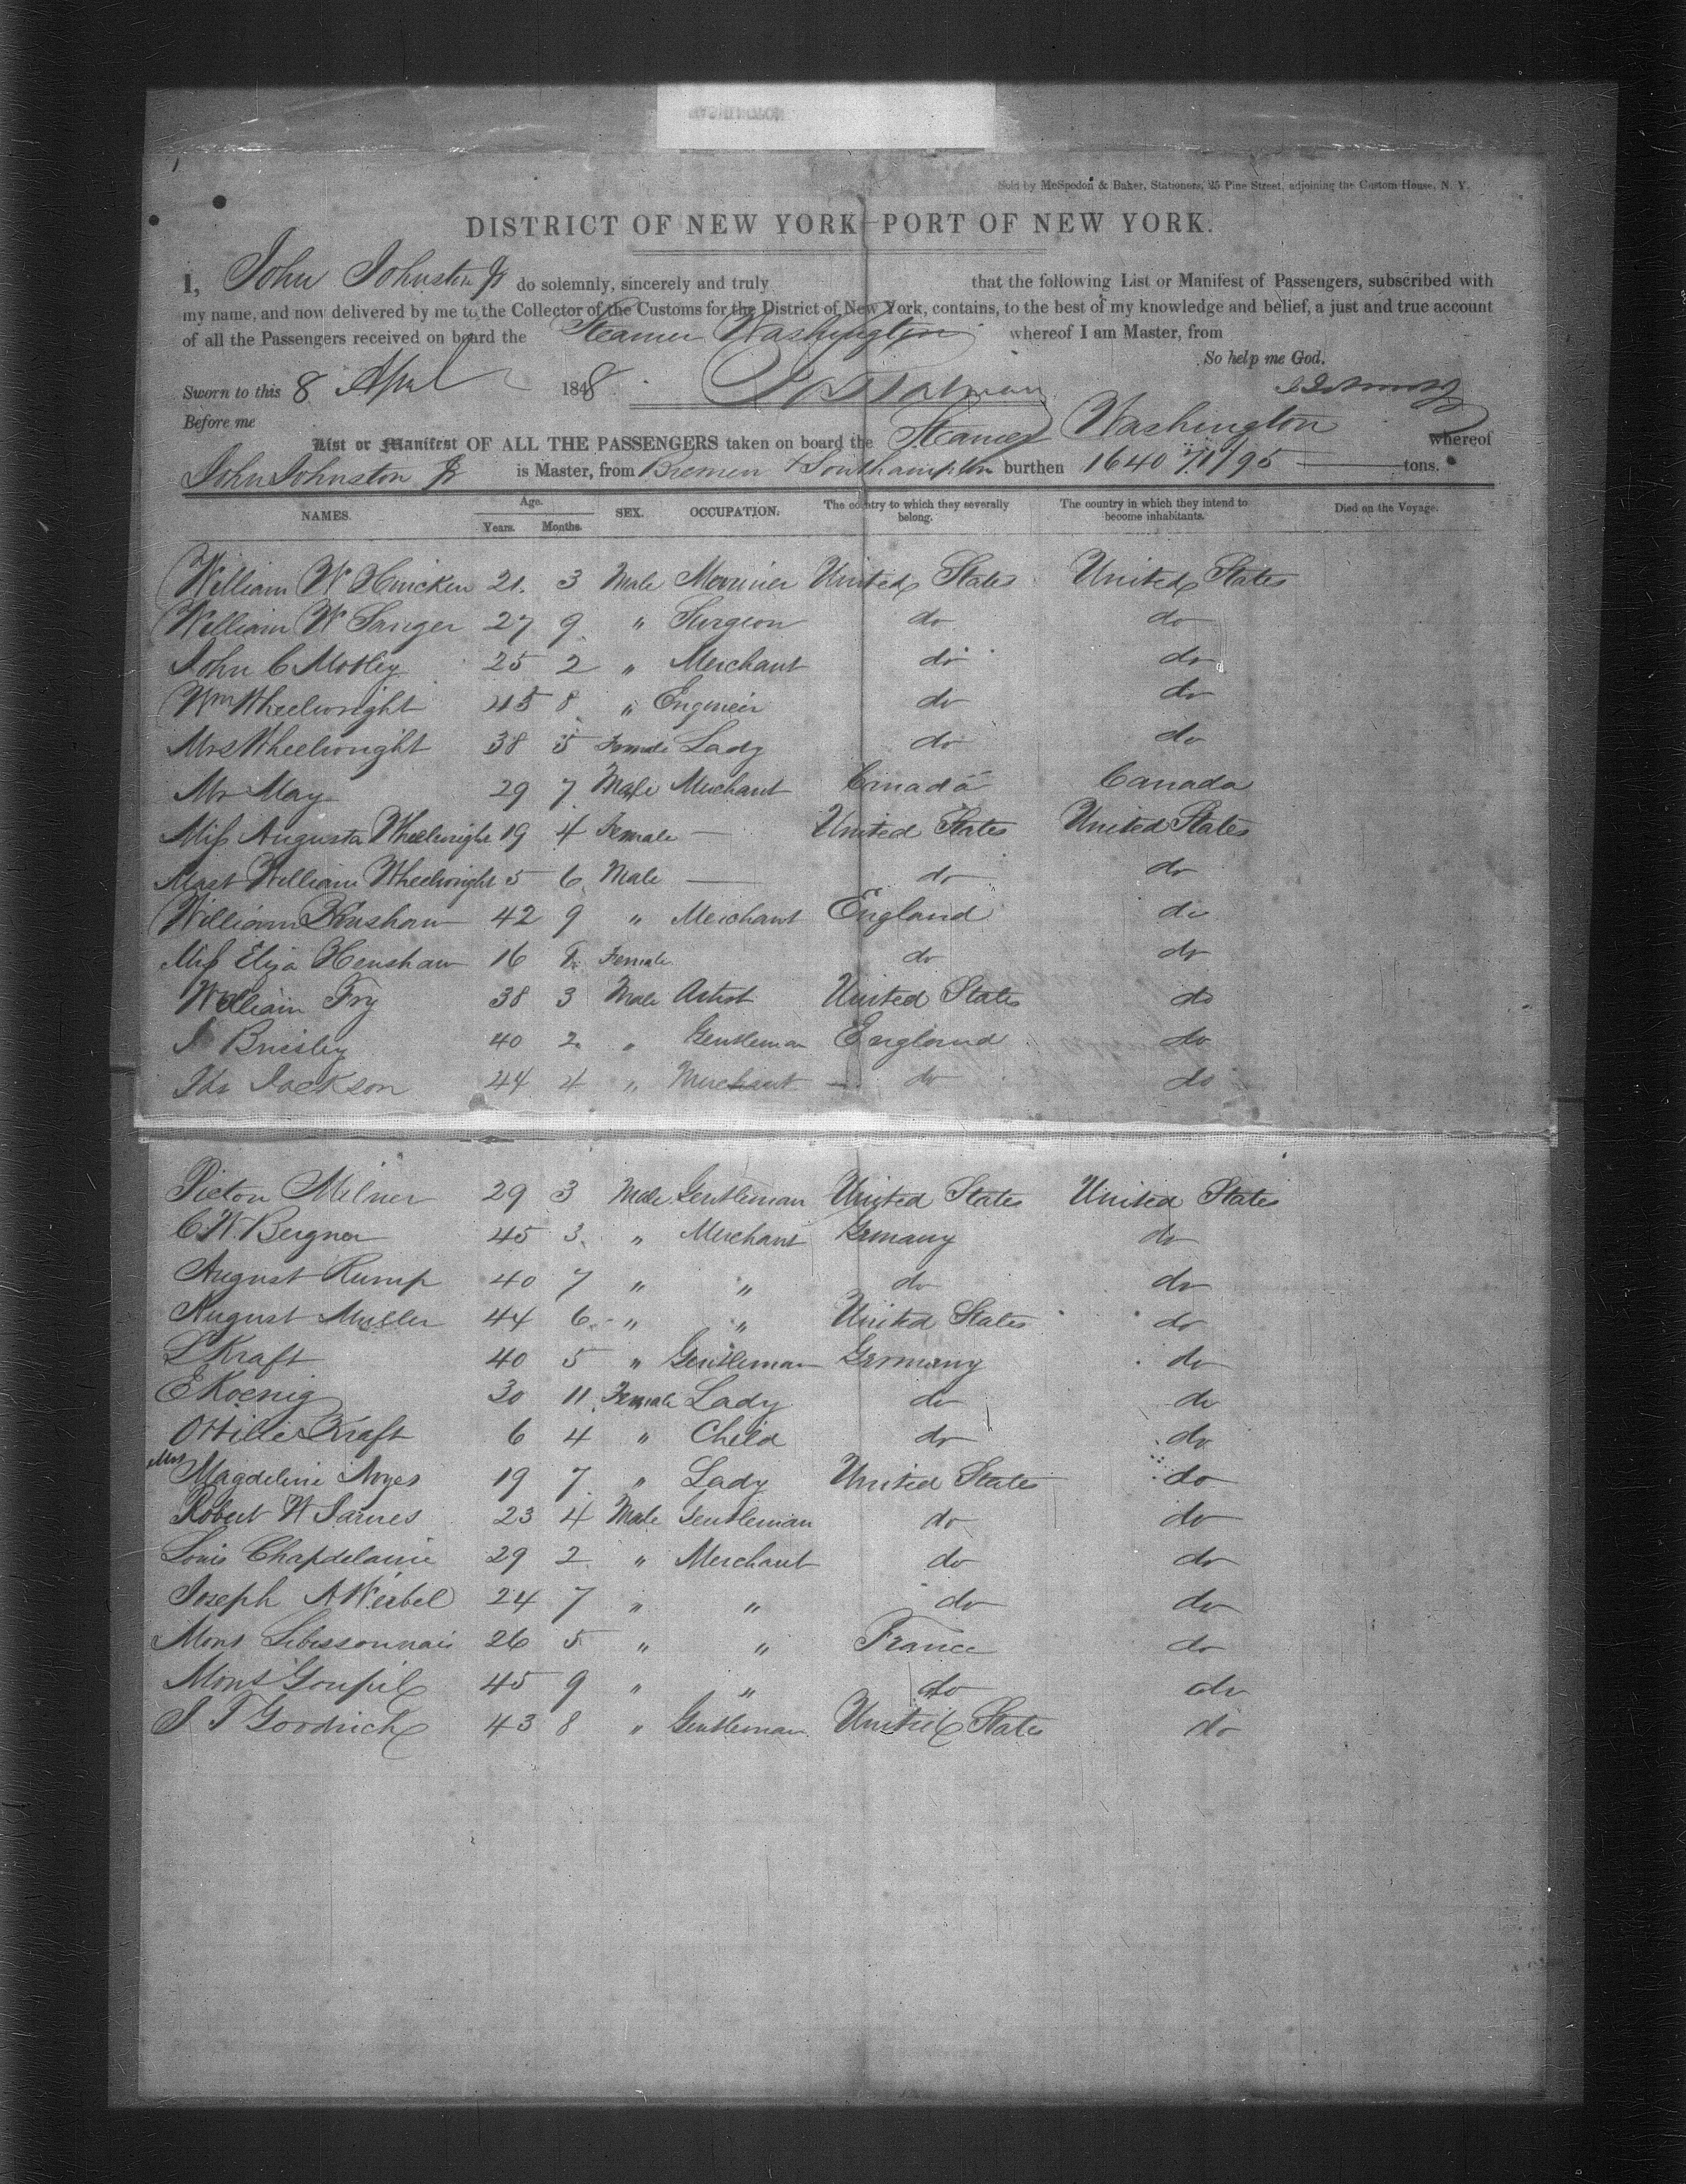 Sold by McSpedon & Baker, Stationers, 25 Pine Street, adjoining the Custom House, N. Y.
DISTRICT OF NEW YORK—PORT OF NEW YORK.
I, John Johnston Jr do solemnly, sincerely and truly that the following List or Manifest of Passengers, subscribed with
my name, and now delivered by me to the Collector of the Customs for the District of New York, contains, to the best of my knowledge and belief, a just and true account
of all the Passengers received on board the Steamer Washington whereof I am Master, from
So help me God.
Sworn to this 8 April 1848
Before me
List or Manifest OF ALL THE PASSENGERS taken on board the Steamer Washington whereof
John Johnston Jr is Master, from Bremen & Southampton burthen 1640 71/95 tons.
NAMES. Age. Years. Months. SEX. OCCUPATION. The country to which they severally belong. The country in which they intend to become inhabitants. Died on the Voyage.
William W 21. 3 Male United States United States
William W Sanger 27 9 " Surgeon do do
John C Mosley 25 2 " Merchant do do
Wm Wheelwright 45 8 " Engineir do do
Mrs Wheelwright 38 5 Female Lady do do
Mr May 29 7 Male Merchant Canada Canada
Miss Augusta Wheelwright 19 4 Female — United States United States
Mast William Wheelwright 5 6 Male — do do
William Henshaw 42 9 " Merchant England do
Miss Eliza Henshaw 16 8 Female do do
William Fry 38 3 Male Artist United States do
J Briesley 40 2 " Gentleman England do
Ths Jackson 44 4 " Merchant — do do
Picton Milner 29 3 Male Gentleman United States United States
C W. Bergner 45 3. " Merchant Germany do
August Rump 40 7 " " do do
August Muller 44 6 " " United States do
L Kraft 40 5 " Gentleman Germany do
E Koenig 30 11 Female Lady do do
Ottilie Kraft 6 4 " Child do do
Mrs Magdeline Noyes 19 7 " Lady United States do
Robert W James 23 4 Male Gentleman do do
Louis Chapdelaine 29 2 " Merchant do do
Joseph A Weibel 24 7 " " do do
Mons Libessonnais 26 5 " " France do
Mons Goupil 45 9 " " do do
S T Goodrich 43 8 " Gentleman United States do